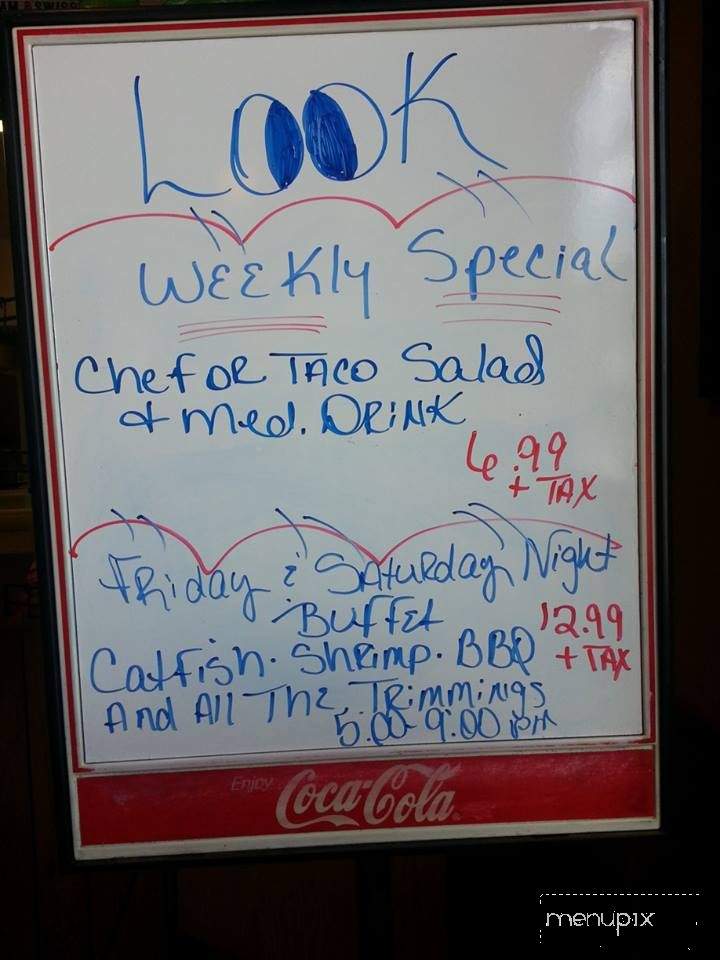 LOOK
WEEKly Special
Chef OR TACO Salad
& Med. DRiNK
6.99
+ TAX
FRiday & SAturday Night
BuffEt
12.99
Catfish. Shrimp. BBQ
+ TAX
And All The Trimmings
5:00-9:00 pm
Enjoy
Coca-Cola
menupix